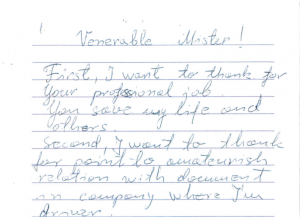 Venerable Mister!
First, I want to thank for
your professional job.
You save my life and
others.
Second, I want to thank
for point to amateurish
relation with document
in company where I'm
driver.